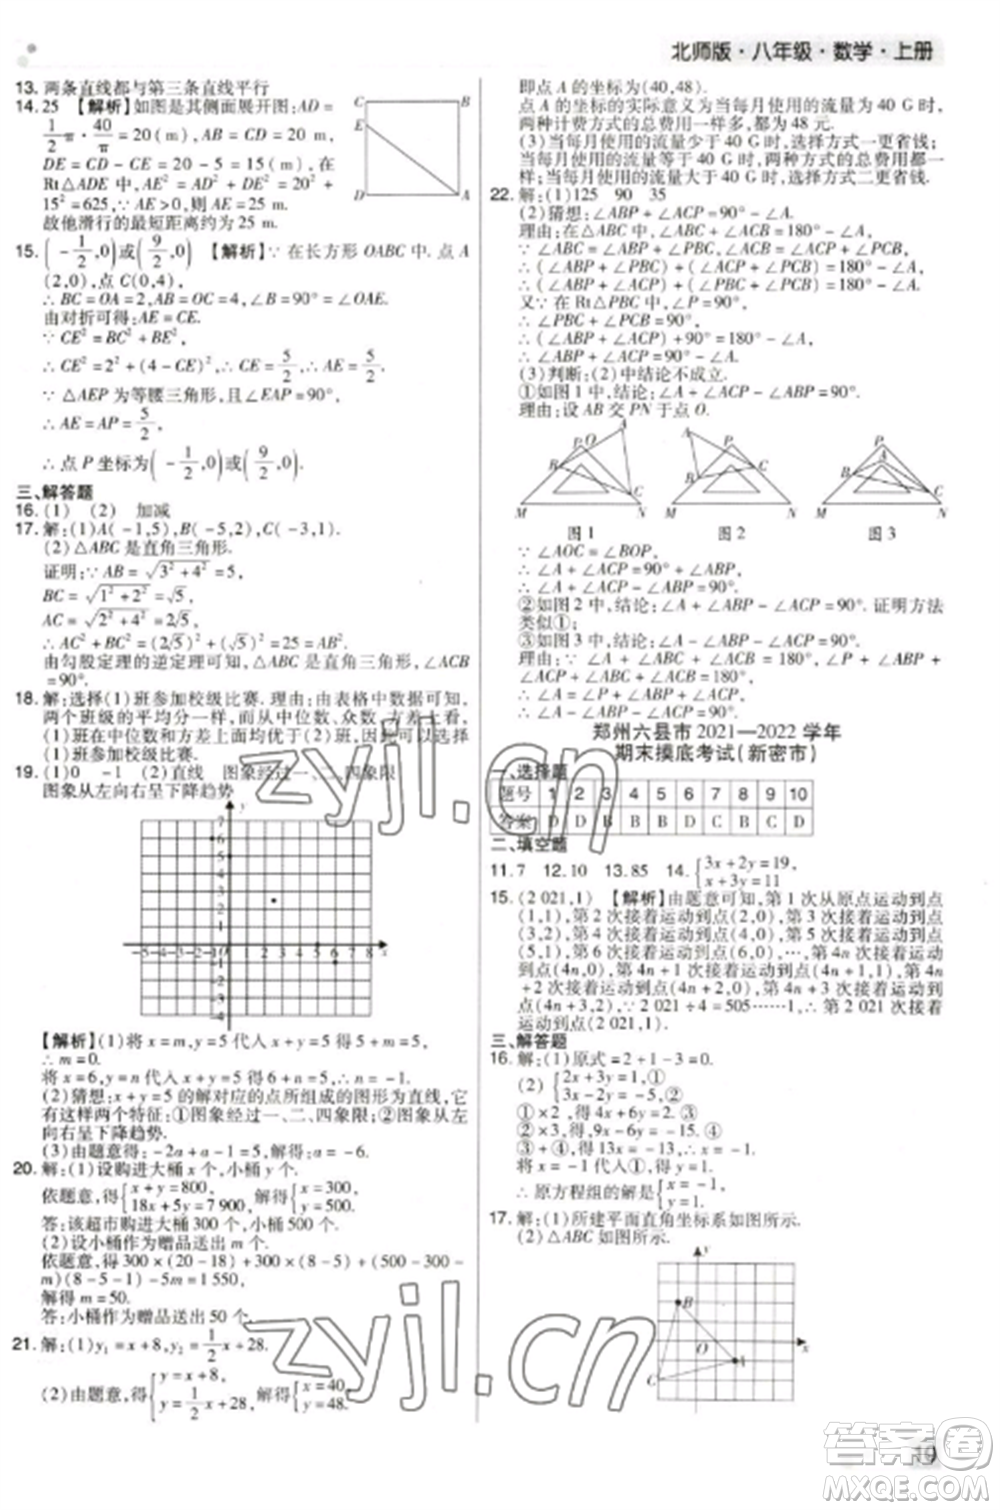 北师版·八年级·数学·上册
13. 两条直线都与第三条直线平行
14. 25 【解析】如图是其侧面展开图:AD=
1/2π·40/π=20(m),AB=CD=20 m.
DE=CD-CE=20-5=15(m),在
Rt△ADE 中,AE²=AD²+DE²=20²+
15²=625,∵AE>0,则 AE=25 m.
故他滑行的最短距离约为 25 m.
C B E D A
15. (-1/2,0)或(9/2,0) 【解析】∵在长方形 OABC 中,点 A
(2,0),点 C(0,4),
∴BC=OA=2,AB=OC=4,∠B=90°=∠OAE.
由对折可得:AE=CE.
∵CE²=BC²+BE²,
∴CE²=2²+(4-CE)²,∴CE=5/2,∴AE=5/2.
∵△AEP 为等腰三角形,且∠EAP=90°,
∴AE=AP=5/2,
∴点 P 坐标为(-1/2,0)或(9/2,0).
三、解答题
16. (1) (2) 加减
17. 解:(1)A(-1,5),B(-5,2),C(-3,1).
(2)△ABC 是直角三角形.
证明:∵AB=√(3²+4²)=5,
BC=√(1²+2²)=√5,
AC=√(2²+4²)=2√5,
∴AC²+BC²=(2√5)²+(√5)²=25=AB²,
由勾股定理的逆定理可知,△ABC 是直角三角形,∠ACB
=90°.
18. 解:选择(1)班参加校级比赛. 理由:由表格中数据可知,
两个班级的平均分一样,而从中位数、众数、方差上看,
(1)班中位数和方差上优于(2)班,因此可以选
(1)班参加校级比赛.
19. (1)0 -1 (2)直线 图象经过一、二、四象限
图象从左向右呈下降趋势
7 6 5 4 3 2 1
-5-4-3-2-1 0 1 2 3 4 5 6 7 8 x
-1 -2 -3 -4
【解析】(1)将 x=m,y=5 代入 x+y=5 得 m+5=5,
∴m=0.
将 x=6,y=n 代入 x+y=5 得 6+n=5,∴n=-1.
(2)猜想:x+y=5 的解对应的点所组成的图形为直线,它
有这样两个特征:①图象经过一、二、四象限;②图象从左
向右呈下降趋势.
(3)由题意得:-2a+a-1=5,解得:a=-6.
20. 解:(1)设购进大桶 x 个,小桶 y 个.
依题意,得{x+y=800, 18x+5y=7 900, 解得{x=300, y=500.
答:该超市购进大桶 300 个,小桶 500 个.
(2)设小桶作为赠品送出 m 个,
依题意,得 300×(20-18)+300×(8-5)+(500-300
-m)(8-5)-5m=1 550,
解得 m=50.
答:小桶作为赠品送出 50 个.
21. 解:(1)y₁=x+8,y₂=1/2x+28.
(2)由题意得{y=x+8, y=1/2x+28, 解得{x=40, y=48.
即点 A 的坐标为(40,48).
点 A 的坐标的实际意义为当每月使用的流量为 40 G 时,
两种计费方式的总费用一样多,都为 48 元.
(3)当每月使用的流量少于 40 G 时,选择方式一更省钱;
当每月使用的流量等于 40 G 时,两种方式的总费用一样
多;当每月使用的流量大于 40 G 时,选择方式二更省钱.
22. 解:(1)125 90 35
(2)猜想:∠ABP+∠ACP=90°-∠A.
理由:在△ABC 中,∠ABC+∠ACB=180°-∠A,
∵∠ABC=∠ABP+∠PBC,∠ACB=∠ACP+∠PCB,
∴(∠ABP+∠PBC)+(∠ACP+∠PCB)=180°-∠A,
∴(∠ABP+∠ACP)+(∠PBC+∠PCB)=180°-∠A.
又∵在 Rt△PBC 中,∠P=90°,
∴∠PBC+∠PCB=90°,
∴(∠ABP+∠ACP)+90°=180°-∠A,
∴∠ABP+∠ACP=90°-∠A.
(3)判断:(2)中结论不成立.
①如图 1 中,结论:∠A+∠ACP-∠ABP=90°.
理由:设 AB 交 PN 于点 O.
图 1 图 2 图 3
∵∠AOC=∠BOP,
∴∠A+∠ACP=90°+∠ABP,
∴∠A+∠ACP-∠ABP=90°.
②如图 2 中,结论:∠A+∠ABP-∠ACP=90°. 证明方法
类似①.
③如图 3 中,结论:∠A-∠ABP-∠ACP=90°.
理由:∵∠A+∠ABC+∠ACB=180°,∠P=90°,
∴∠A-∠ABP-∠ACP=90°.
郑州六县市 2021—2022 学年
期末摸底考试(新密市)
一、选择题
题号 1 2 3 4 5 6 7 8 9 10
答案 D D B B D D
二、填空题
11. 7 12. 10 13. 85 14. {3x+2y=19, x+4y=11
15. (2 021,1) 【解析】由题意可知,第 1 次从原点运动到点
(1,1),第 2 次接着运动到点(2,0),第 3 次接着运动到点
(3,2),第 4 次接着运动到点(4,0),第 5 次接着运动到点
(5,1),第 6 次接着运动到点(6,0),…,第 4n 次接着运动
到点(4n,0),第 4n+1 次接着运动到点(4n+1,1),第 4n
+2 次接着运动到点(4n+2,0),第 4n+3 次接着运动到
点(4n+3,2),∵2 021÷4=505……1,∴第 2 021 次接着
运动到点(2 021,1).
三、解答题
16. 解:(1)原式=2+1-3=0.
①×2,得 4x-6y=2,③
②×3,得 9x+6y=-15,④
③+④,得 13x=-13,解得 x=-1.
把 x=-1 代入①,得 y=-1.
∴原方程组的解是{x=-1, y=-1.
17. 解:(1)所建平面直角坐标系如图所示.
(2)△ABC 如图所示.
y B O A x C
19
zyjl.cn
zyjl.cn
答案圈
MXQE.COM